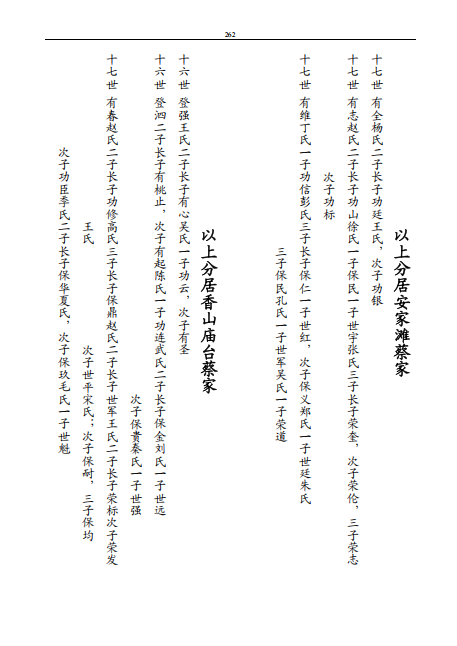 262
以上分居安家滩蔡家
十七世 有全杨氏二子长子功廷王氏，次子功银
十七世 有志赵氏二子长子功山徐氏一子保民一子世宇张氏三子长子荣奎，次子荣伦，三子荣志
次子功标
十七世 有维丁氏一子功信彭氏三子长子保仁一子世红，次子保义郑氏一子世廷朱氏
三子保民孔氏一子世军吴氏一子荣道
以上分居香山庙台蔡家
十六世 登强王氏二子长子有心吴氏一子功云，次子有圣
十六世 登泗二子长子有桃止，次子有起陈氏一子功连武氏二子长子保金刘氏一子世远
次子保贵秦氏一子世强
十七世 有春赵氏二子长子功修高氏三子长子保鼎赵氏二子长子世军王氏二子长子荣标次子荣发
王氏 次子世平宋氏；次子保耐，三子保均
次子功臣季氏二子长子保华夏氏，次子保玖毛氏一子世魁